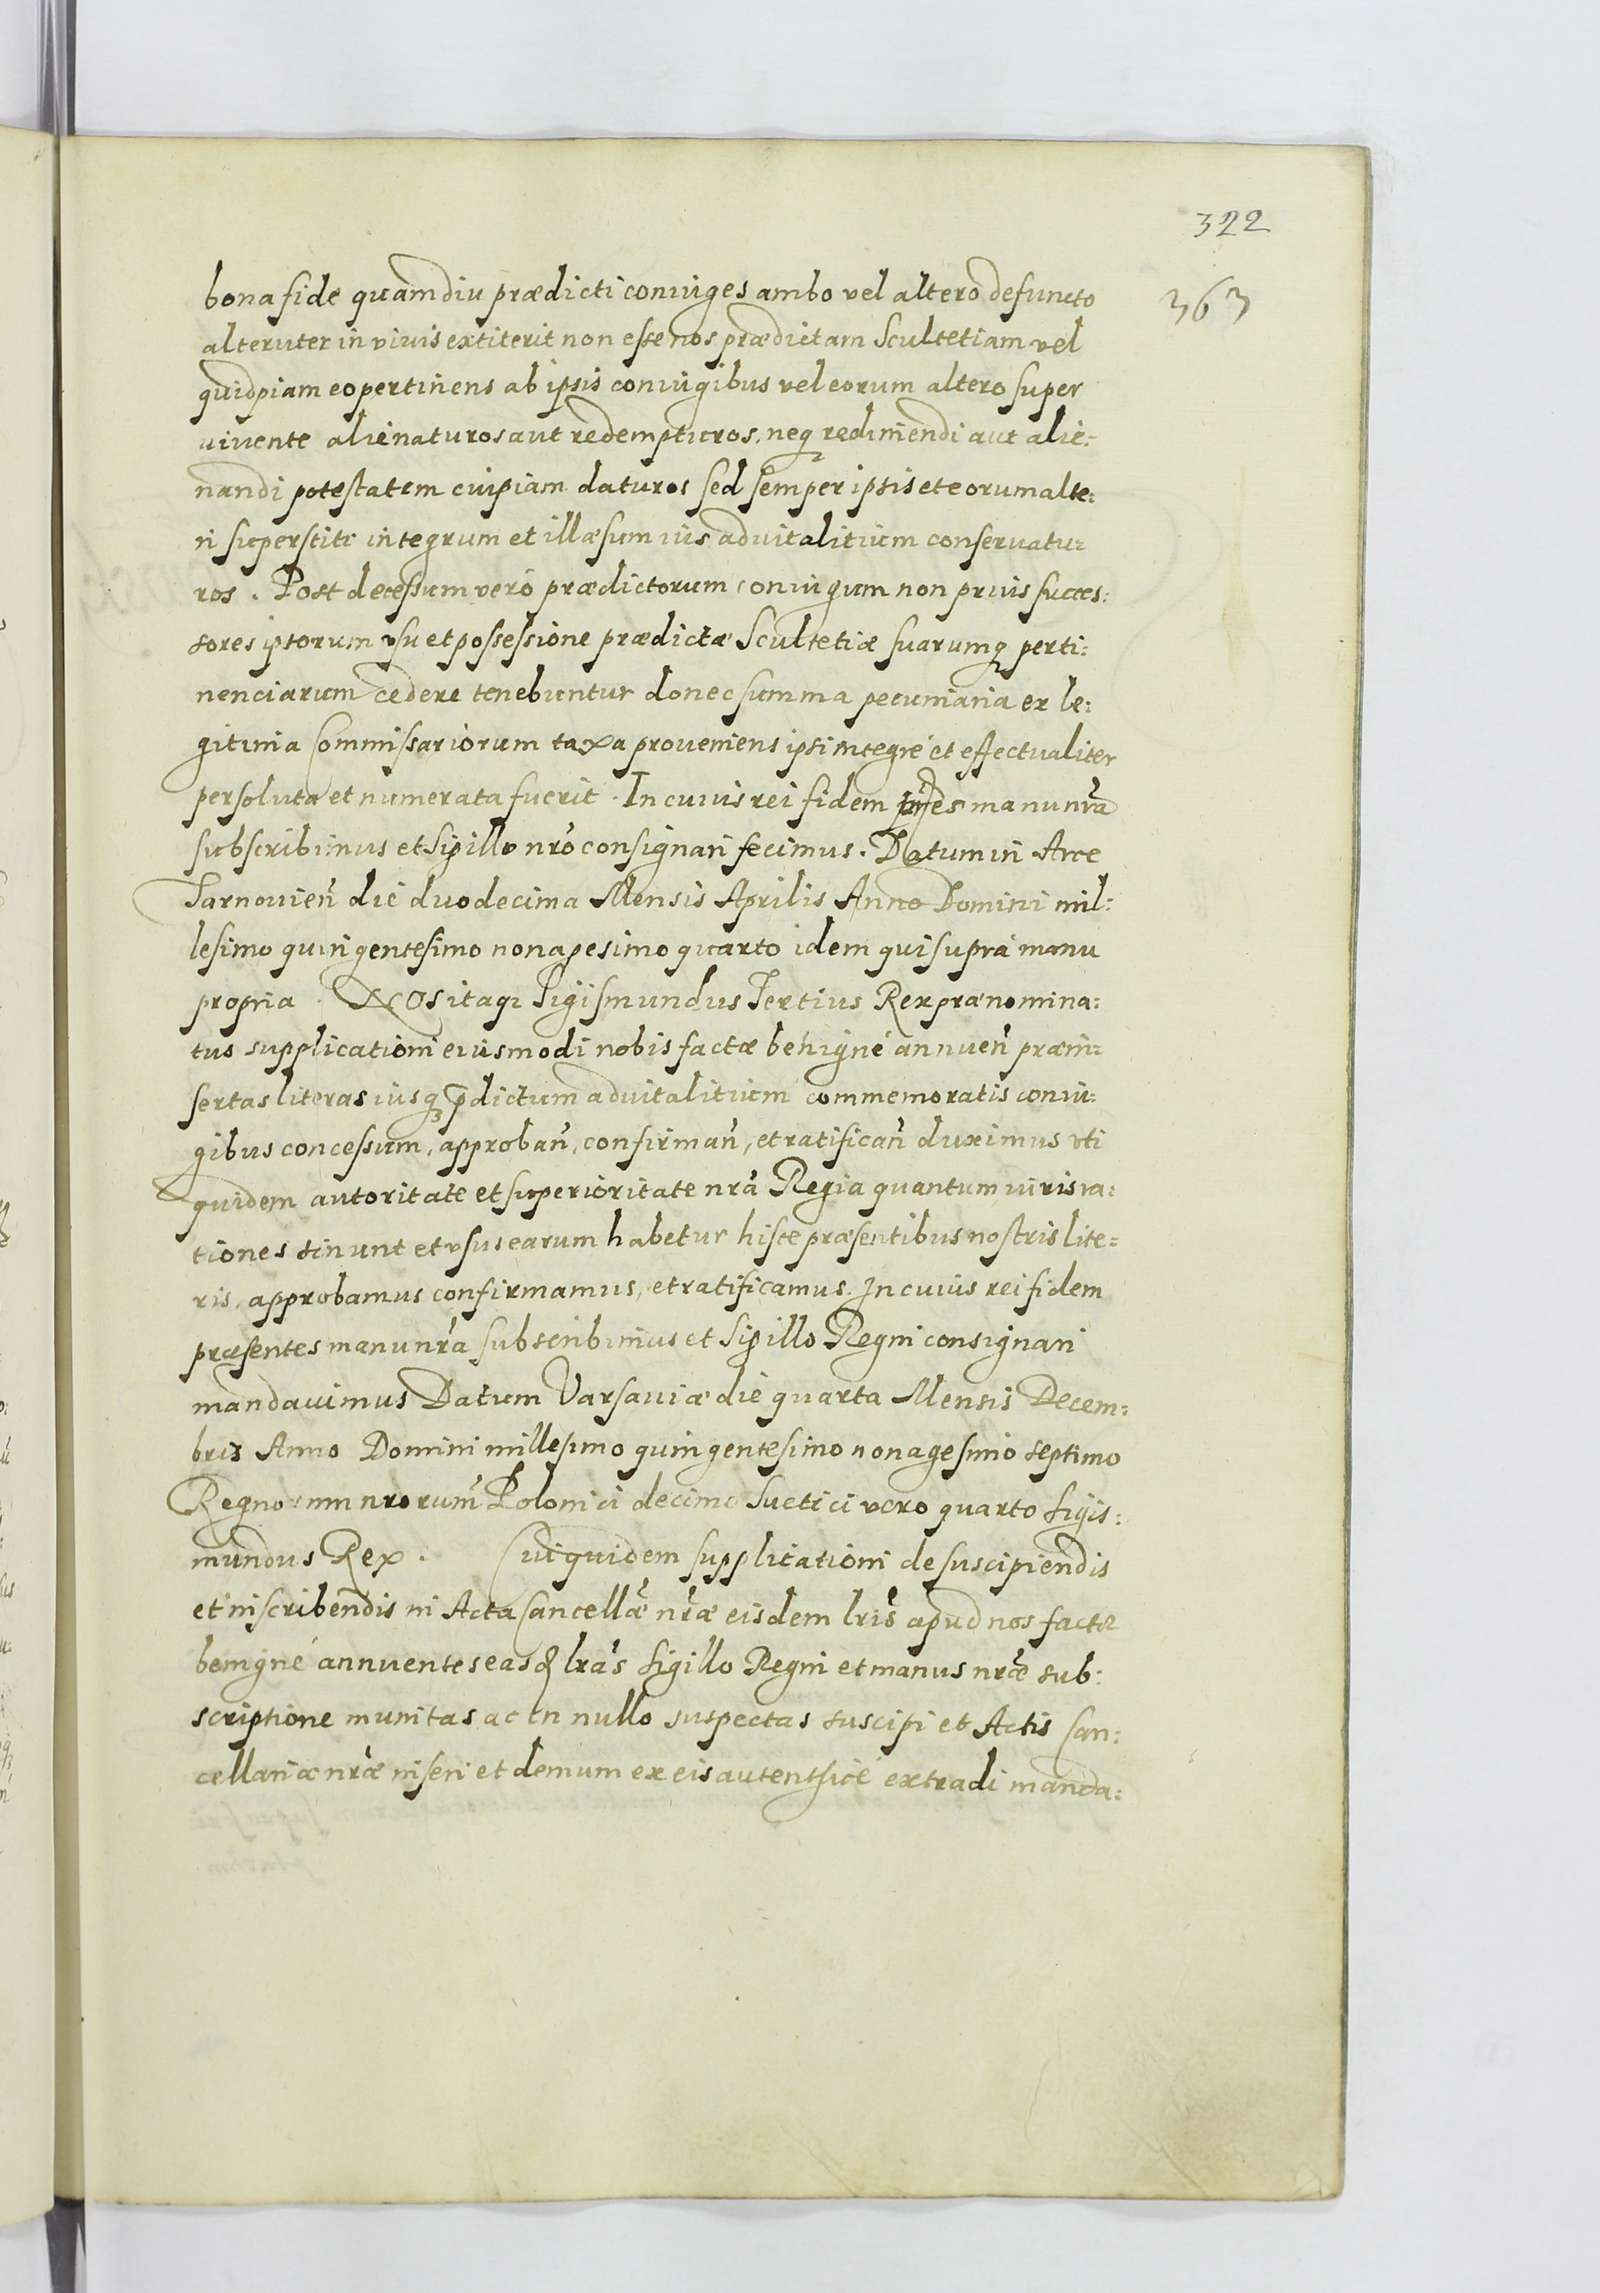 322
363
bona fide quamdiu prædicti coniuges ambo vel altero defuncto
alteruter in vivis extiterit non esse nos prædictam Scultetiam vel
quidpiam eo pertinens ab ipsis coniugibus vel eorum altero super
vivente alienaturos aut redempturos, neq redimendi aut alie:
nandi potestatem cuipiam daturos sed semper ipsis et eorum alte:
ri superstiti integrum et illæsum ius aduitalitium conseruatu:
ros. Post decessum verò prædictorum coniugum non prius succes:
sores ipsorum vsu et possessione prædictæ Scultetiæ suarumq perti:
nenciarum cedere tenebuntur donec summa pecuniaria ex le:
gitima Commissariorum taxa proueniens ipsi integrè et effectualiter
persoluta et numerata fuerit. In cuius rei fidem pñtes manu nrã
subscribimus et Sigillo nrõ consignari fecimus. Datum in Arce
Tarnouieñ die duodecima Mensis Aprilis Anno Domini mil:
lesimo quingentesimo nonagesimo quarto idem qui suprà manu
propria. Nos itaqz Sigismundus Tertius Rex prænomina:
tus supplicationi eiusmodi nobis factæ benignè annueñ præin:
sertas literas iusq p̃dictum aduitalitium commemoratis coniu:
gibus concessum, approbañ, confirmañ, et ratificañ duximus vti
quidem autoritate et superioritate nrã Regia quantum iuris ra:
tiones sinunt et vsus earum habetur hisce præsentibus nostris lite:
ris, approbamus confirmamus, et ratificamus. In cuius rei fidem
præsentes manu nrã subscribimus et Sigillo Regni consignari
mandauimus Datum Varsauiæ die quarta Mensis Decem:
bris Anno Domini millesimo quingentesimo nonagesimo septimo
Regnorum nrorum̃ Polonici decimo Suetici vero quarto Sigis:
mundus Rex. Cui quidem supplicationi de suscipiendis
et inscribendis in Acta Cancellæ̃ nræ̃ eisdem lris̃ apud nos factæ
benignè annuentes easq lrãs Sigillo Regni et manus nræ̃ sub:
scriptione munitas ac in nullo suspectas suscipi et Actis Can:
cellariæ nræ̃ inseri et demum ex eis autenthicè extradi manda: